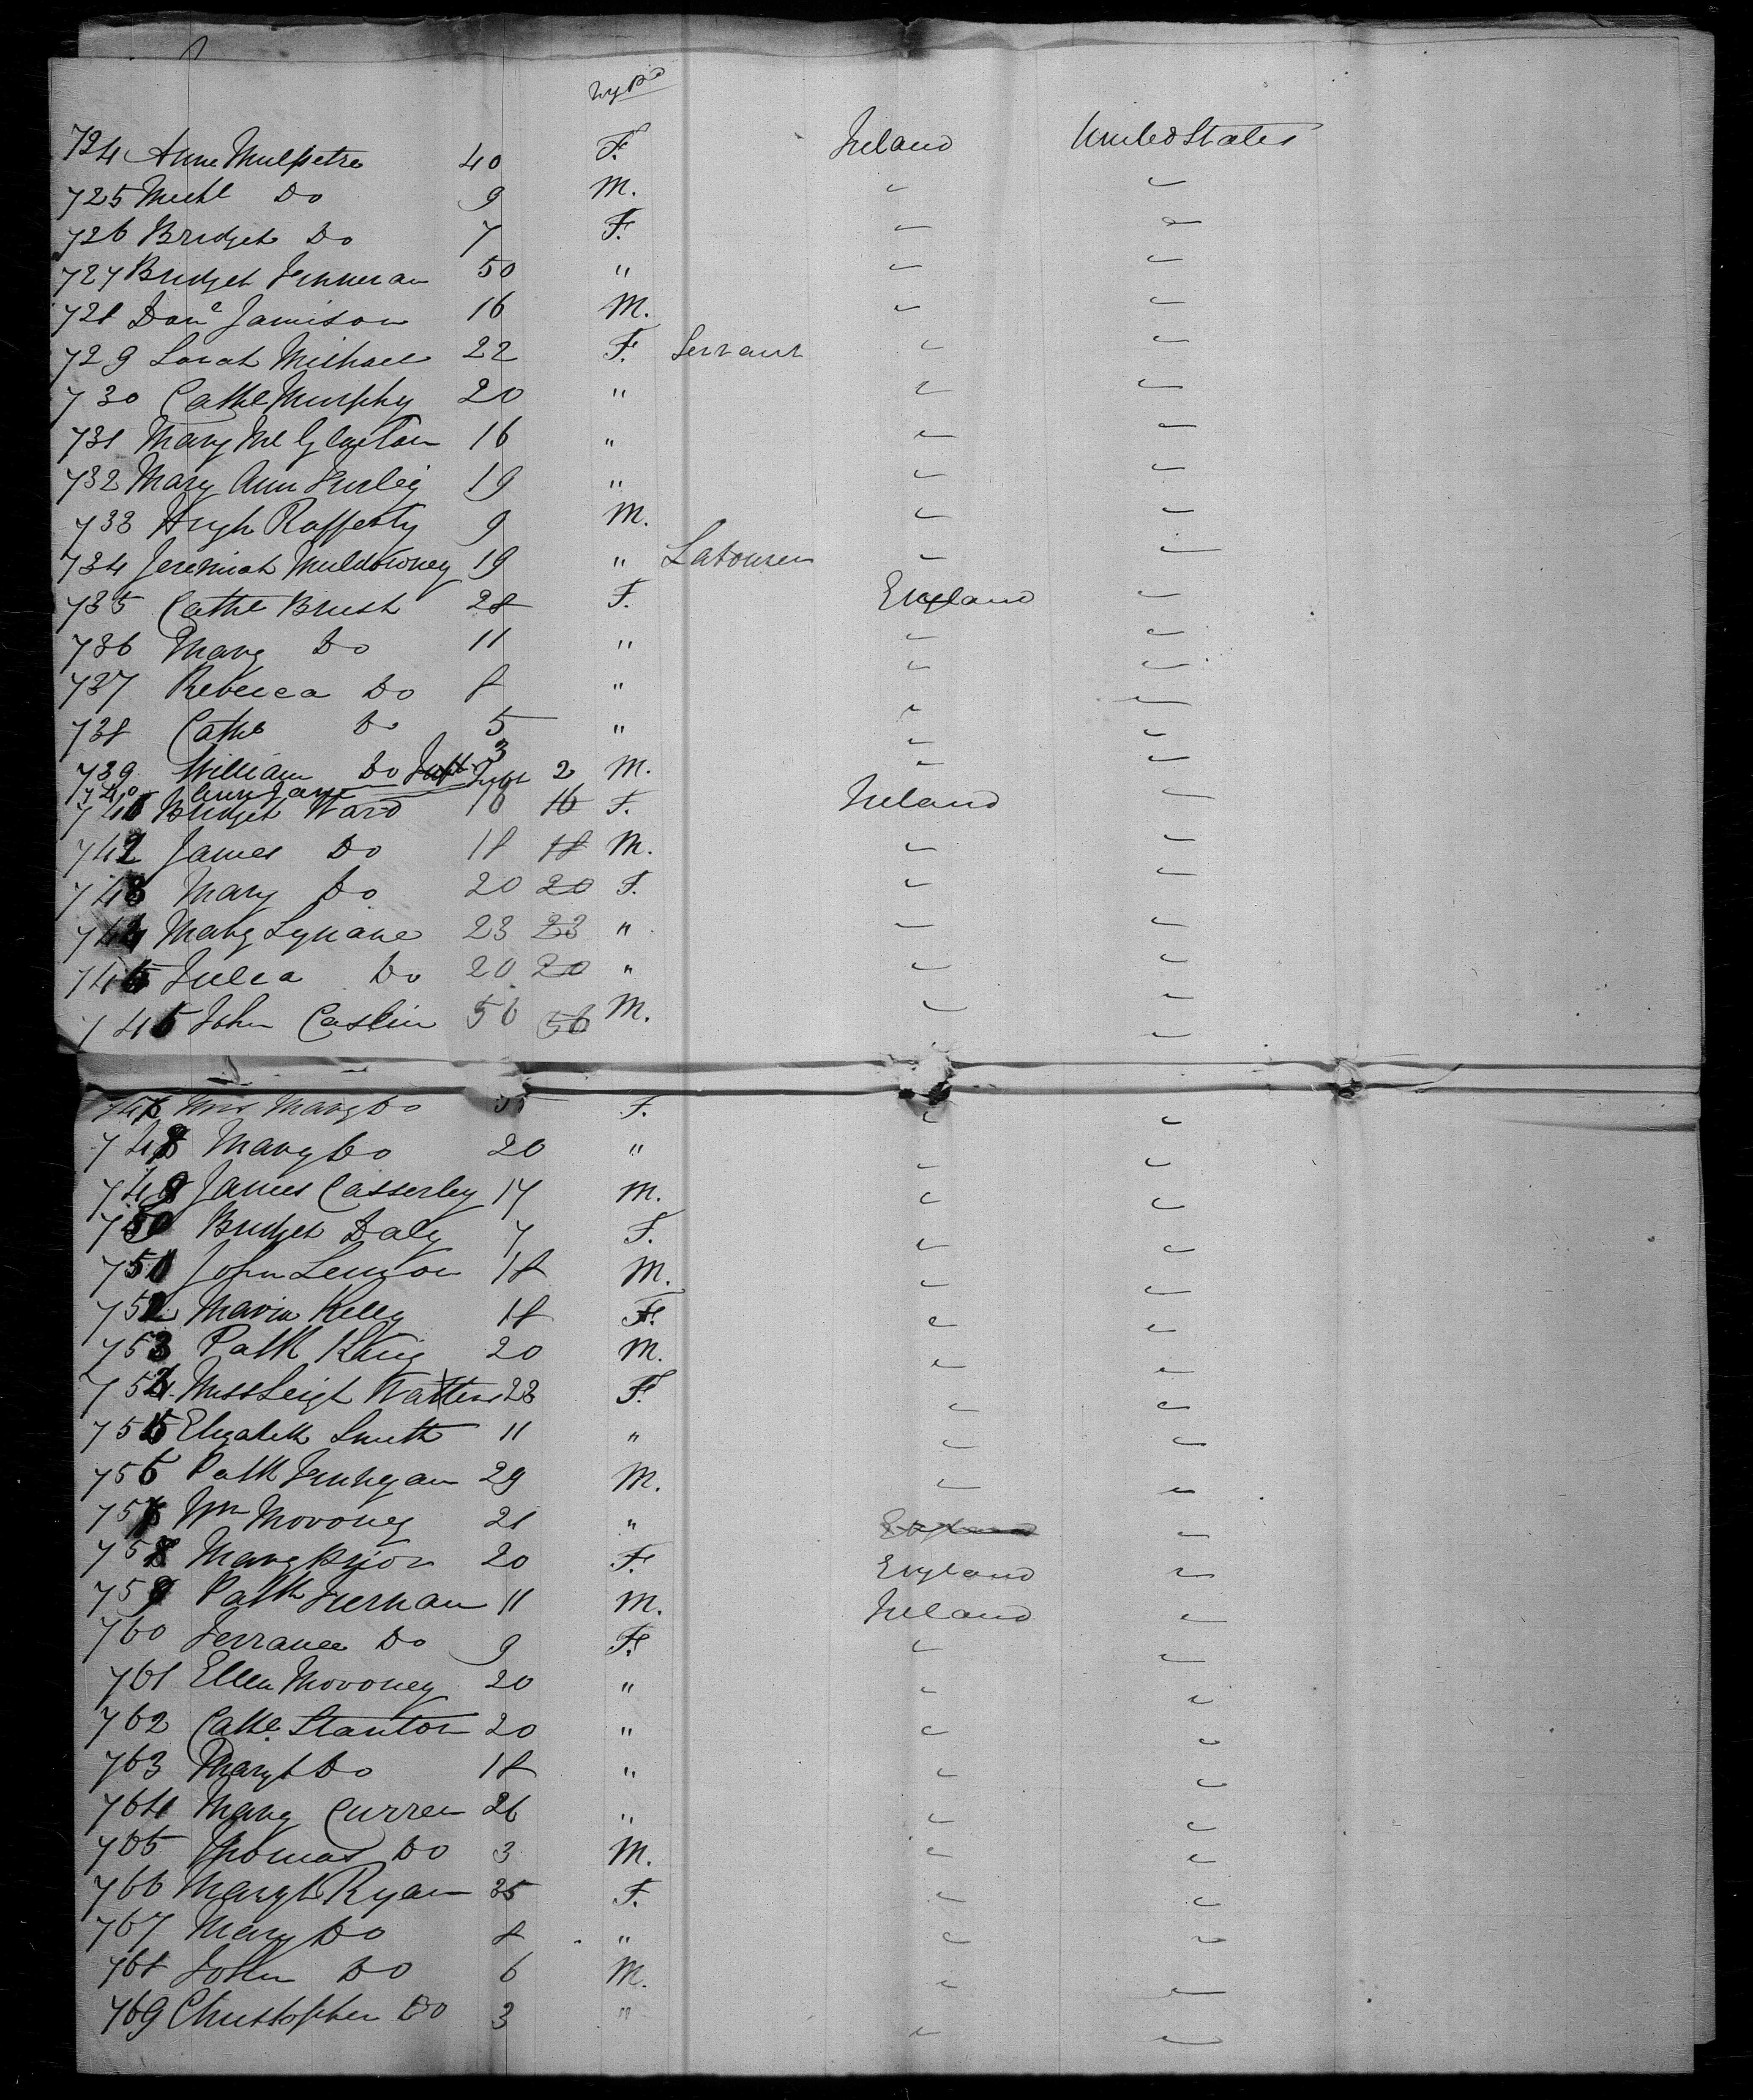 724 Anne Mulpetre 40 F. Ireland United States
725 Michl Do 9 M. " "
726 Bridget Do 7 F. " "
727 Bridget Finneran 50 " " "
728 Danl Jamison 16 M. " "
729 Sarah Michael 22 F. Servant " "
730 Cathe Murphy 20 " " "
731 Mary Mc Glaeton 16 " " "
732 Mary Ann Furley 19 " " "
733 Hugh Rafferty 9 M. " "
734 Jeremiah Muldowney 19 " Labourer " "
735 Cathe Brush 28 F. England "
736 Marg Do 11 " " "
737 Rebecca Do 8 " " "
738 Cathe Do 5 " " "
739 William Do 3 M. " "
740 Ann Jane 2
741 Bridget Ward 16 16 F. Ireland "
742 James Do 18 18 M. " "
743 Mary Do 20 20 F. " "
744 Marg Lynane 23 23 " " "
745 Julia Do 20 20 " " "
746 John Caslin 56 56 M. " "
747 Mrs Marg Do F. " "
748 Marg Do 20 " " "
749 James Casserley 17 M. " "
750 Bridget Daly 7 F. " "
751 John Lennon 18 M. " "
752 Maria Kelly 18 F. " "
753 Patk King 20 M. " "
754 Miss Leigh Watters 23 F. " "
755 Elizabeth Smith 11 " " "
756 Patk Finnegan 29 M. " "
757 Wm Morony 21 " England "
758 Marg Prior 20 F. England "
759 Patk Tiernan 11 M. Ireland "
760 Terrance Do 9 F. " "
761 Ellen Moroney 20 " " "
762 Cathe Stanton 20 " " "
763 Margt Do 18 " " "
764 Marg Curren 26 " " "
765 Thomas Do 3 M. " "
766 Margt Ryan 35 F. " "
767 Mary Do 8 " " "
768 John Do 6 M. " "
769 Christopher Do 3 " " "